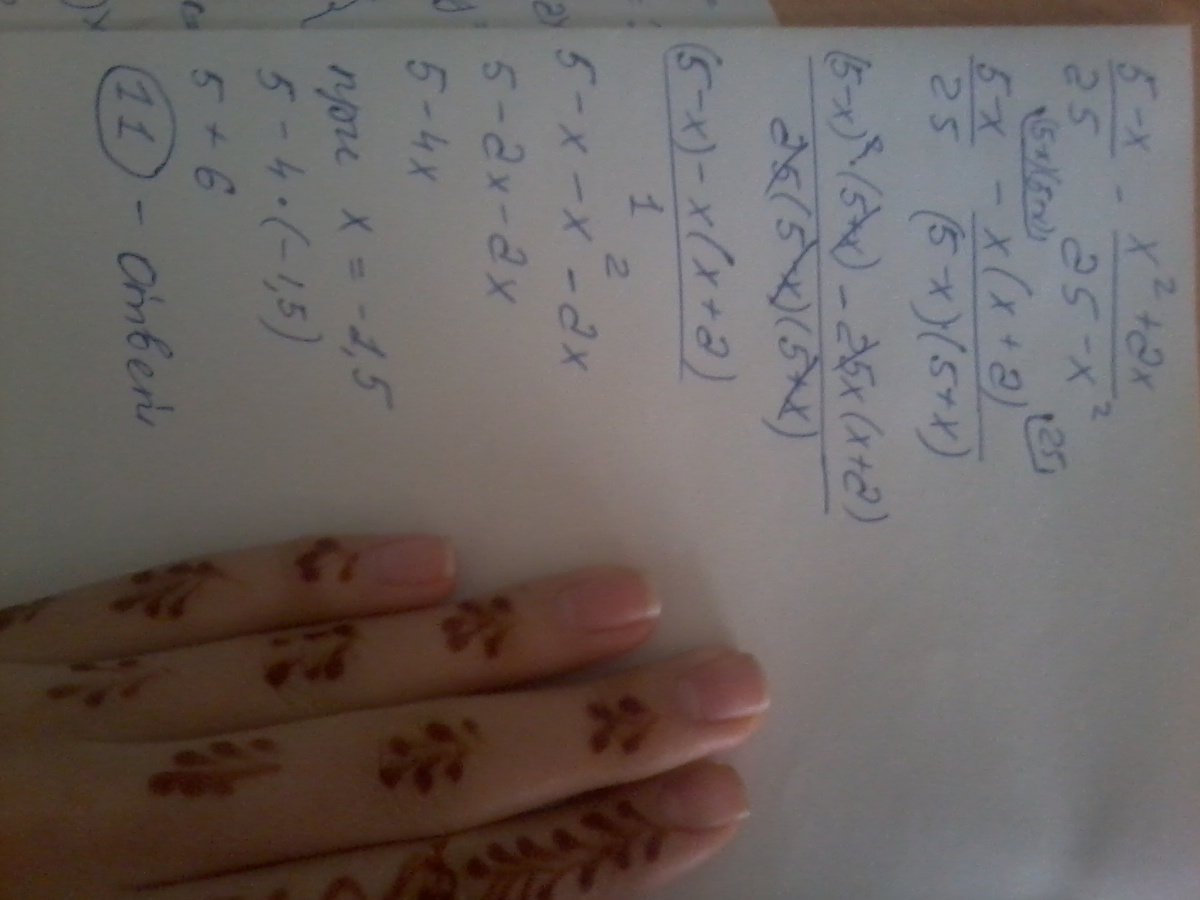 5-x/25 - x²+2x/25-x²
5-x/25 - x(x+2)/(5-x)(5+x)
(5-x)²·(5+x) - 25x(x+2)/25(5-x)(5+x)
(5-x)-x(x+2)/1
5-x-x²-2x
5-2x-2x
5-4x
при x=-1,5
5-4·(-1,5)
5+6
11 - Ответ